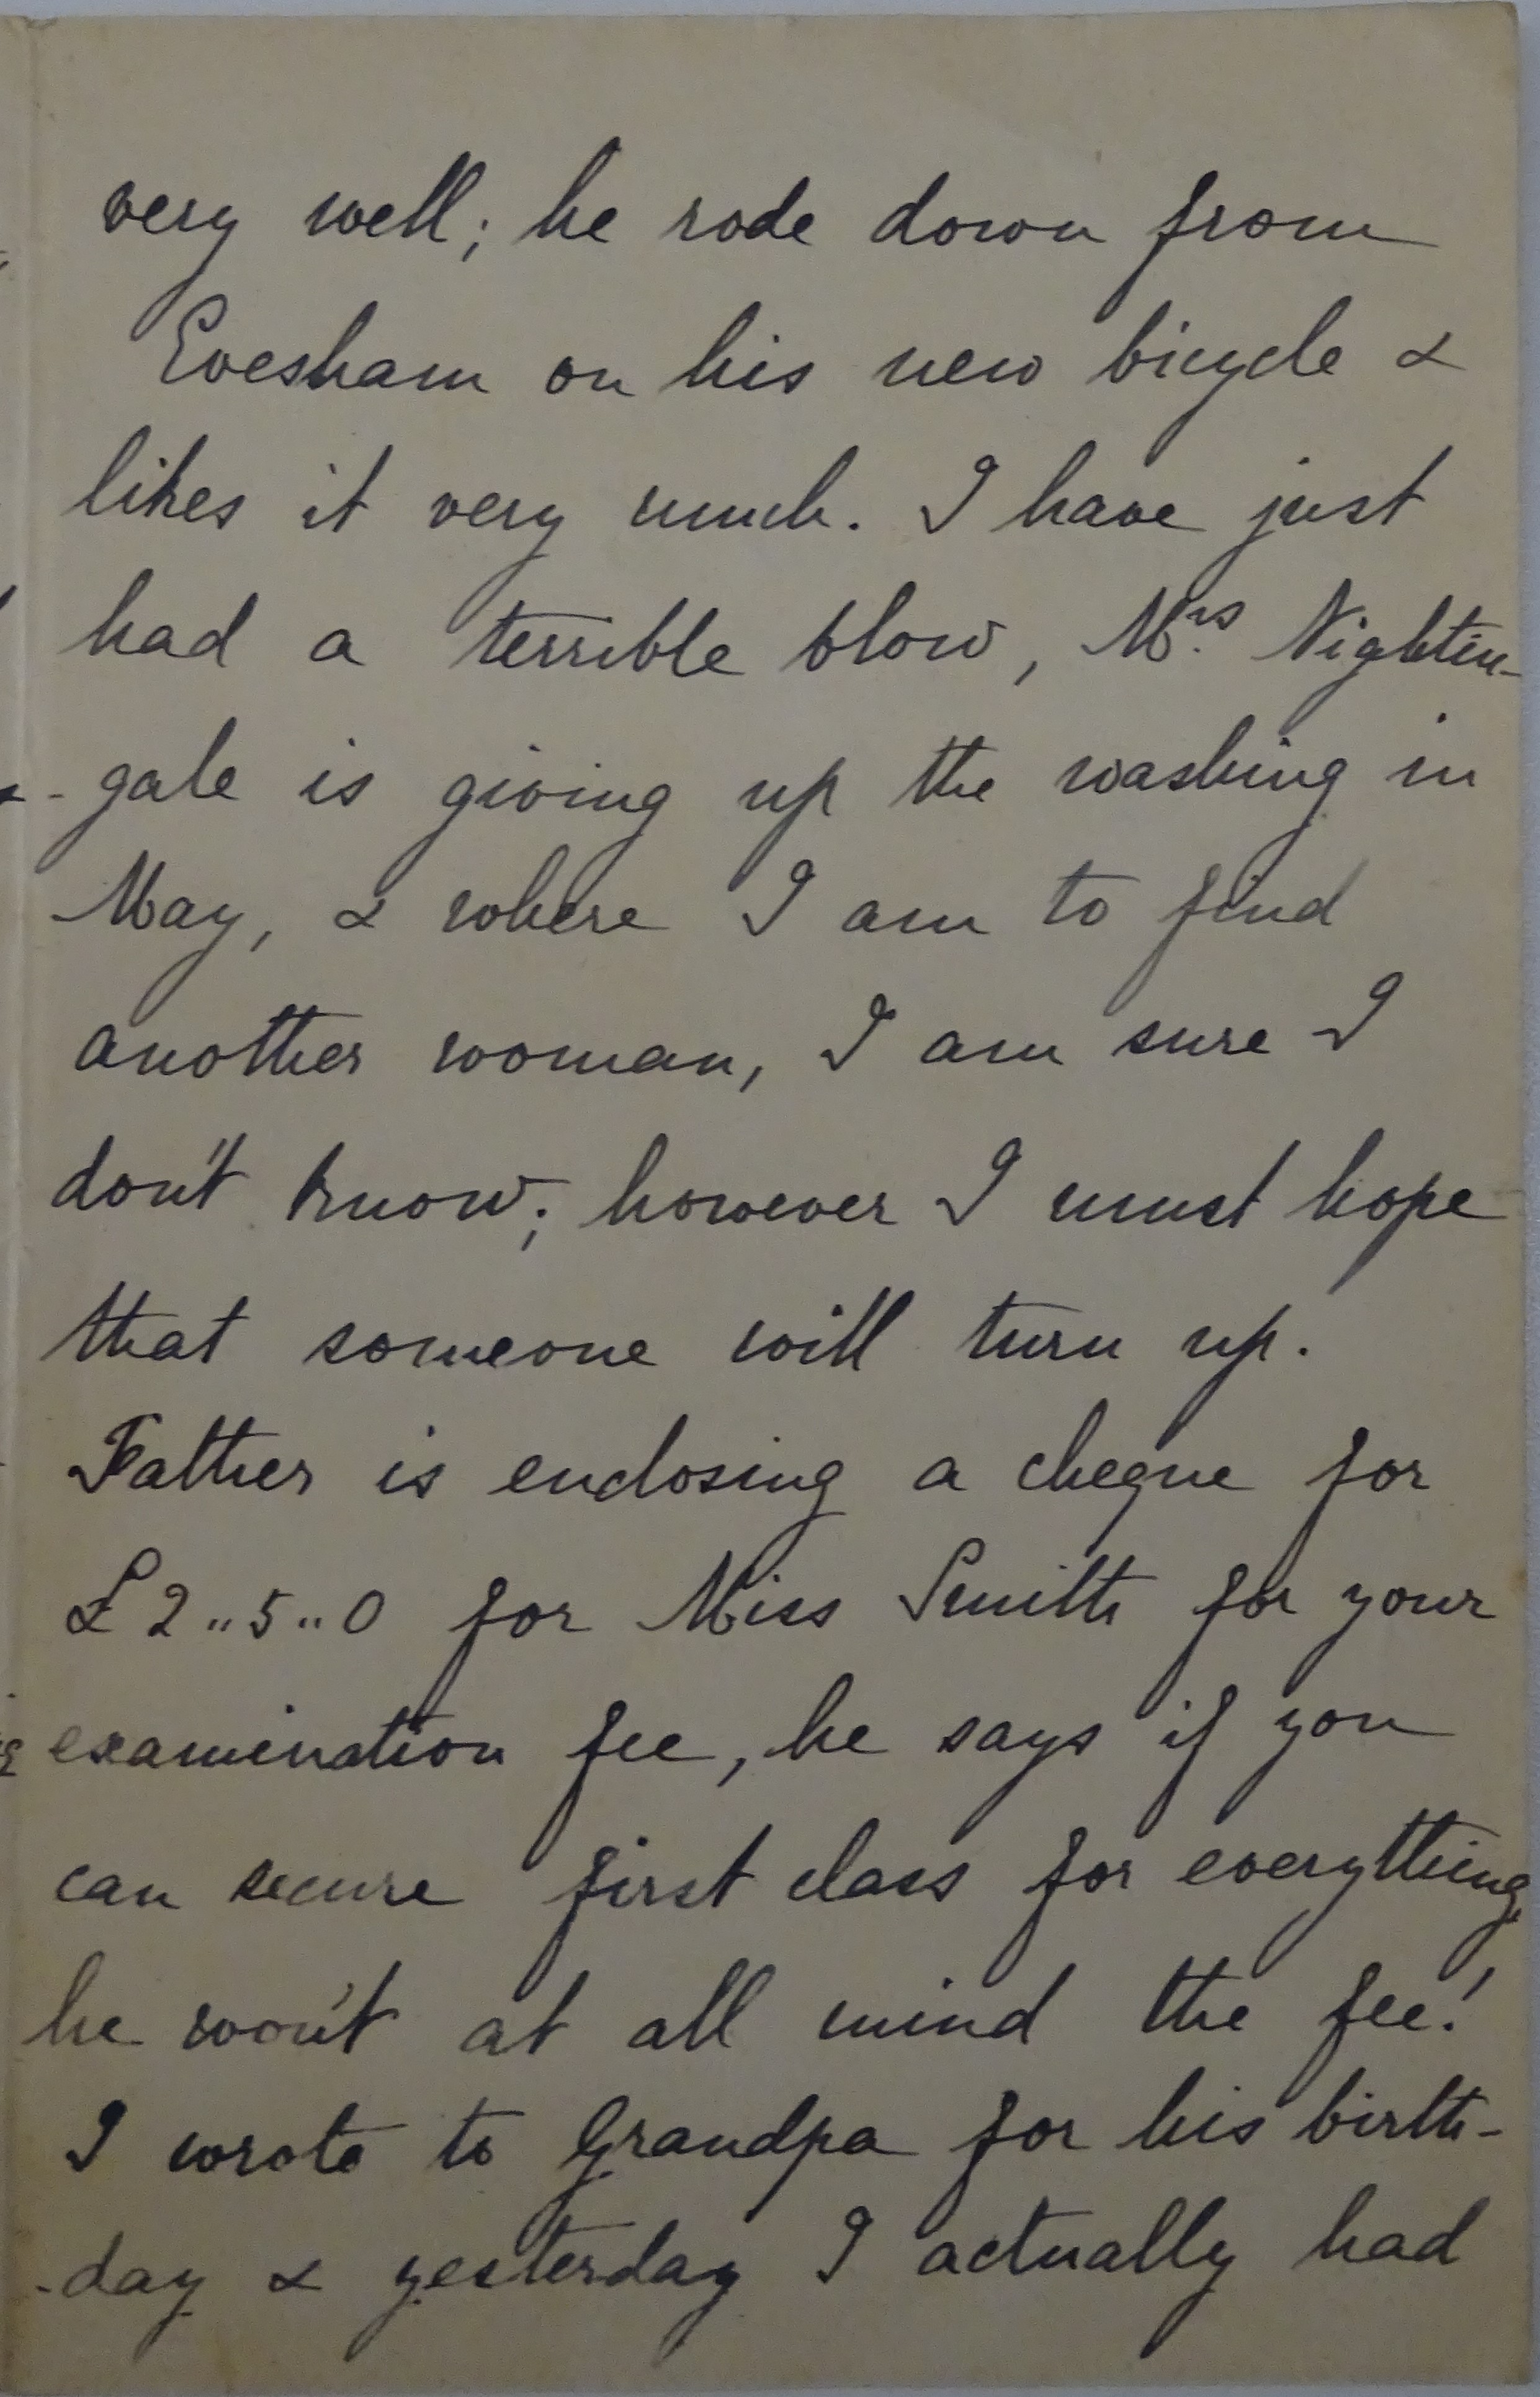 very well; he rode down from
Evesham on his new bicycle &
likes it very much. I have just
had a terrible blow, Mrs Nightin-
-gale is giving up the washing in
May, & where I am to find
another woman, I am sure I
don't know; however I must hope
that someone will turn up.
Father is enclosing a cheque for
£2"5"0 for Miss Smith for your
examination fee, he says if you
can secure first class for everything,
he won't at all mind the fee!
I wrote to Grandpa for his birth-
-day & yesterday I actually had